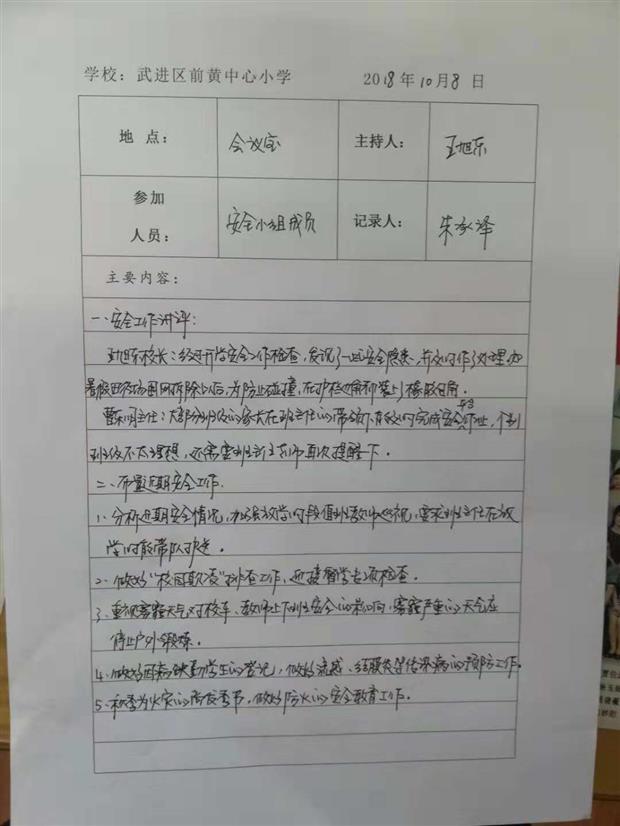 学校：武进区前黄中心小学 2018年10月8日
地 点： 会议室 主持人： 王旭东
参加人员： 安全小组成员 记录人： 朱承泽
主要内容：
一、安全工作讲评：
王旭东校长：经过开学安全工作检查，发现了一些安全隐患，并及时作了处理，如
暑假田径场围网拆除以后，为防止碰撞，在护栏边角都装上了橡胶包角。
主任：大部分班级的家长在班主任的带领下有效及时完成安全平台作业，个别
班级不太理想，还需要班主任老师再次提醒一下。
二、布置近期安全工作。
1、分析近期安全情况，加强放学时段值班教师巡视，要求班主任在放
学时段带队护送。
2、做好“校园欺凌”排查工作，迎接督学专项检查。
3、重视雾霾天气对校车、教师上下班安全的影响，雾霾严重的天气应
停止户外锻炼。
4、做好因病缺勤学生的登记，做好流感、结膜炎等传染病的预防工作。
5、秋季为火灾的高发季节，做好防火的安全教育工作。